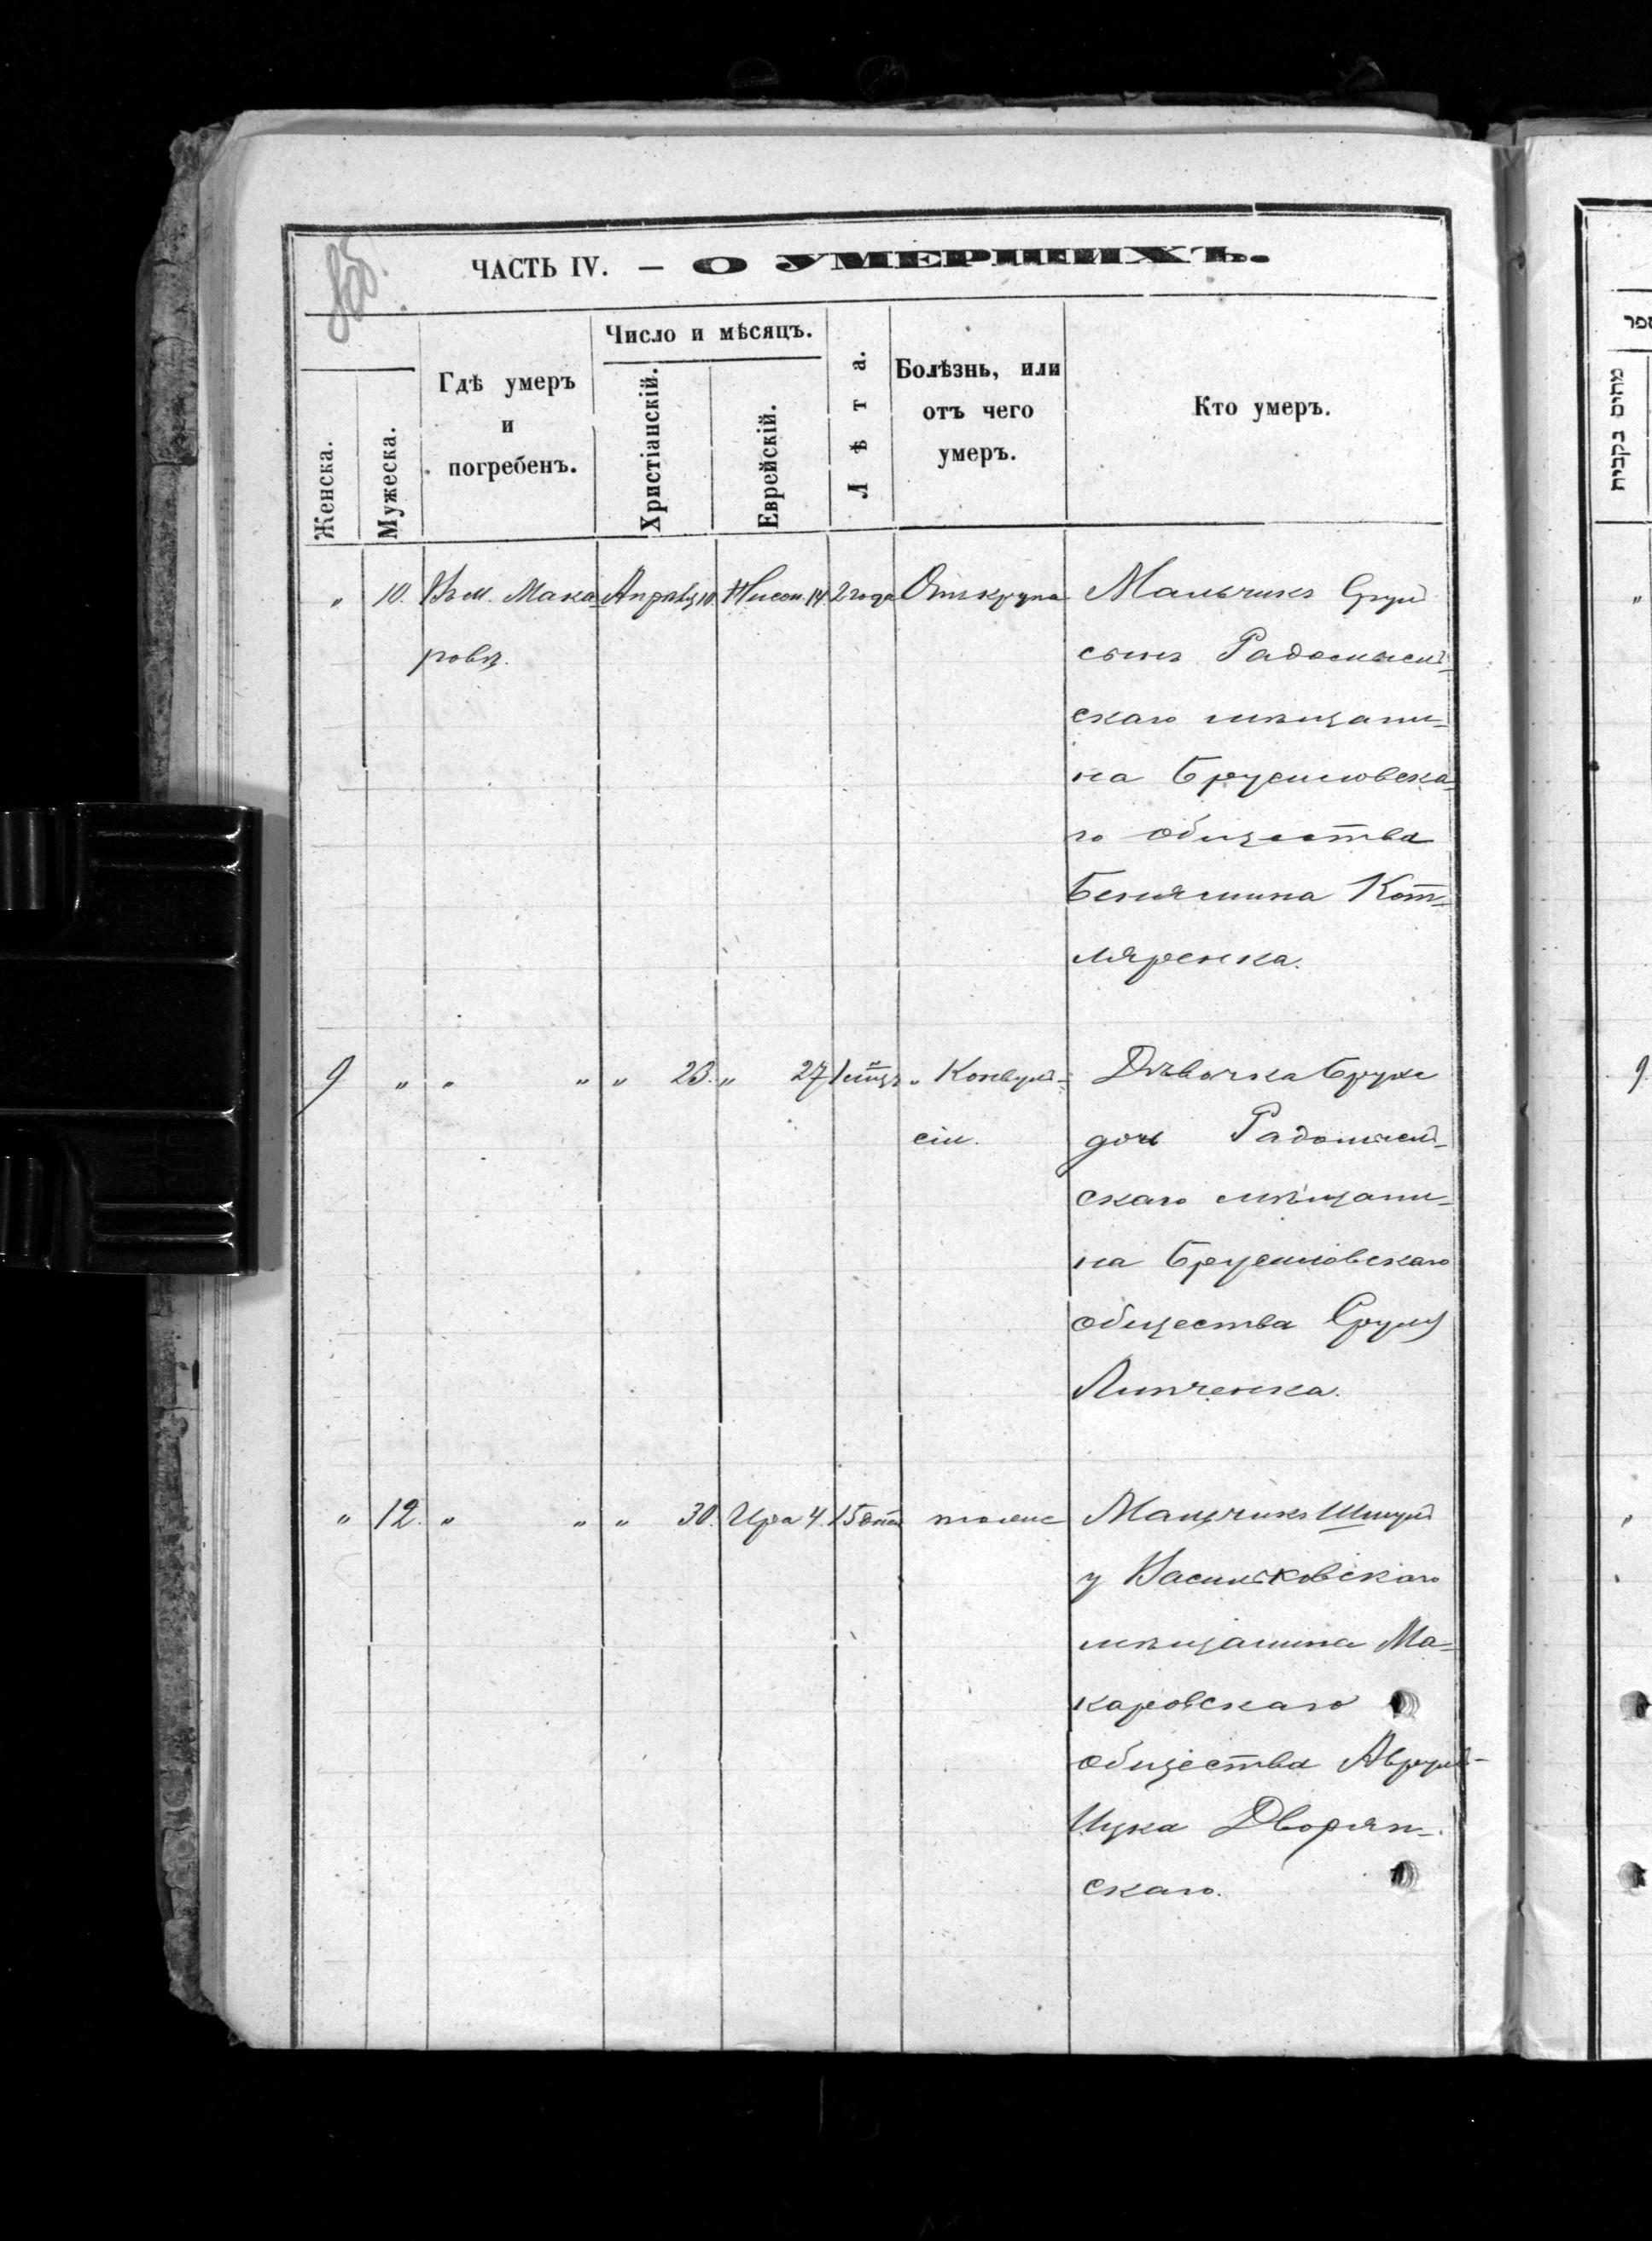 85.
ЧАСТЬ IV. — О УМЕРШИХЪ.
Женска.
Мужеска.
Гдѣ умеръ
и
погребенъ.
Число и мѣсяцъ.
Христіанскій.
Еврейскій.
Лѣта.
Болѣзнь, или
отъ чего
умеръ.
Кто умеръ.
„ 10. Въ м. Мака- Апрѣля 10. Нисон. 14. 2 года Отъ крупа Мальчикъ Сруль
ровѣ. сынъ Радомысль-
скаго мѣщани-
на Брусиловска-
го общества
Беніямина Кот-
ляренка.
9 „ „ „ „ 23. „ 27 1 мѣц „ Конвуль- Дѣвочка Брухе
сіи. дочь Радомысль-
скаго мѣщани-
на Брусиловскаго
общества Сруля
Липченка.
„ 12. „ „ „ 30. Ира 4. 15 дней тоже Мальчикъ Шмуль
у Васильковскаго
мѣщанина Ма-
каровскаго
общества Аврум-
Ицка Дворян-
скаго.
ספר
מתים נקבות
„
9
„